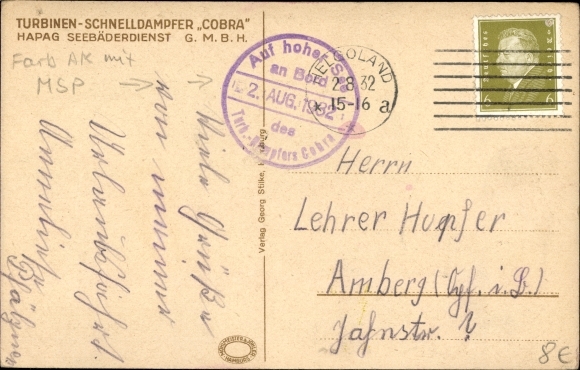 TURBINEN-SCHNELLDAMPFER „COBRA"
HAPAG SEEBÄDERDIENST G. M. B. H.
Farb AK mit
MSP
Viele Grüße
von meiner
Urlaubsfahrt.
Auf hoher See
an Bord
2. AUG. 1932
des
Turb.-Dampfers Cobra
HELGOLAND
2.8.32
15-16 a
6 6
Verlag Georg Stilke, Hamburg
Herrn
Lehrer Hupfer
Amberg (Opf. i. B.)
Jahnstr. ?
MÜHLMEISTER & JOHLER
HAMBURG
8€